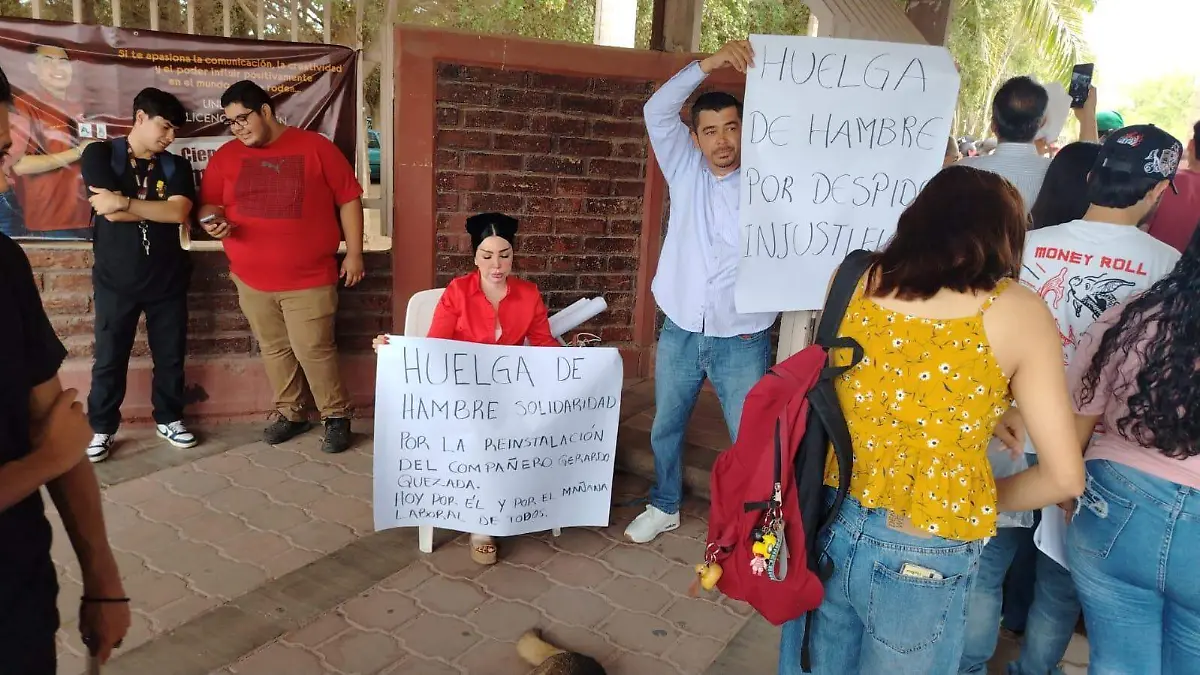 Si te apasiona la comunicación, la creatividad
y el poder influir positivamente
en el mundo
rodea...
LICENC
Cien
HUELGA
DE HAMBRE
POR DESPIDO
INJUSTI
HUELGA DE
HAMBRE SOLIDARIDAD
POR LA REINSTALACIÓN
DEL COMPAÑERO GERARDO
QUEZADA.
HOY POR ÉL Y POR EL MAÑANA
LABORAL DE TODOS.
MONEY ROLL